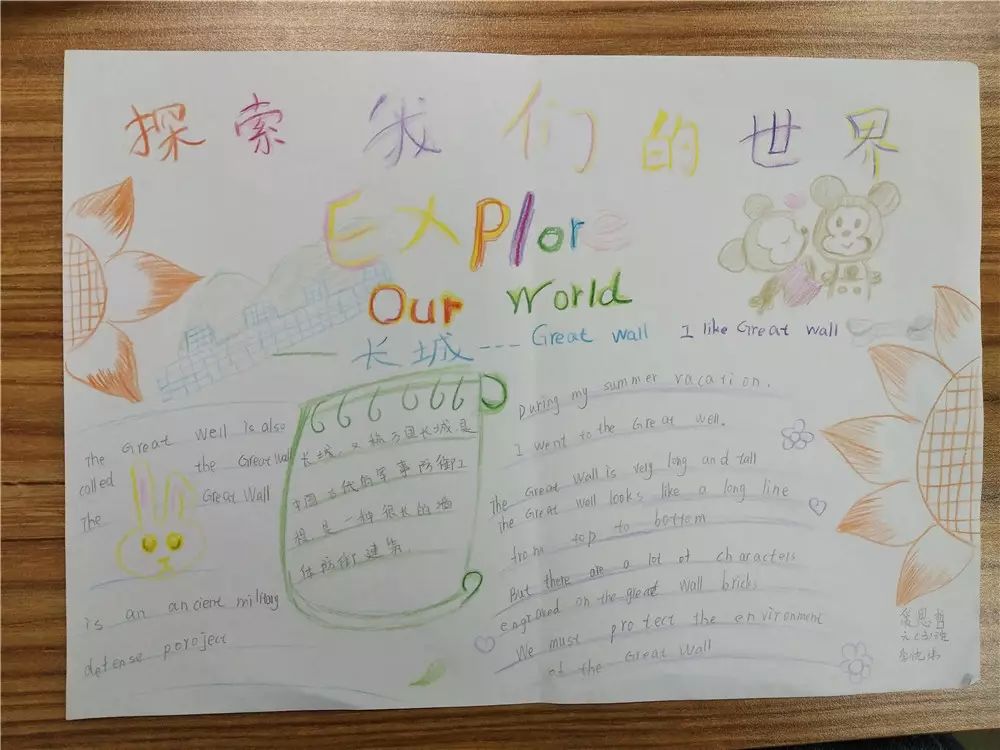 探索我们的世界
Explore
Our World
长城--- Great wall I like Great wall
The Great Well is also
called the Great Wall
The Great Wall
is an ancient military
defense poroject
长城,又称万里长城是
中国古代的军事防御工
程是一种很长的墙
体防御建筑.
During my summer vacation.
I went to the Great well.
The Great Wall is very long and tall
the Great Wall looks like a long line
from top to bottom
But there are a lot of characters
engraved on the great wall bricks
We must protect the environment
of the Great Wall